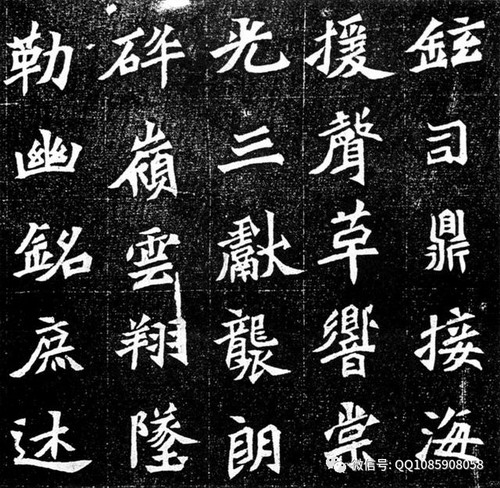 鉉司鼎接海
援聲草響棠
光三獻襲朗
砕嶺雲翔墜
勒幽銘庶述
微信号: QQ1085908058